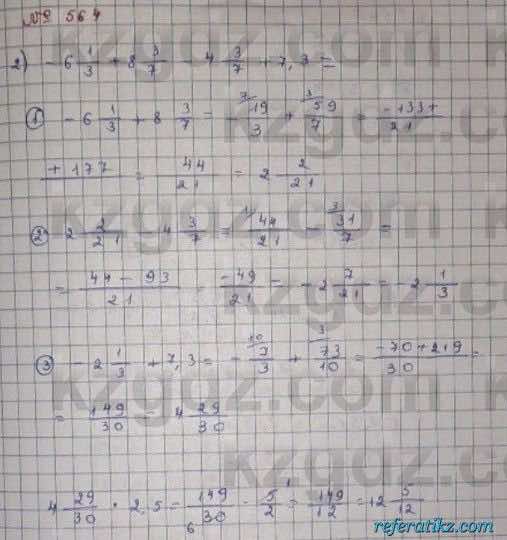 № 564
2) -6 1/3 + 8 3/7 4 3/7 + 7,3 =
① -6 1/3 + 8 3/7 = -19/3 + 59/7 = -133+
+177 = 44/21 = 2 2/21
② 2 2/21 4 3/7 = 44/21 - 31/7 =
= 44 - 93/21 -49/21 = -2 7/21 = -2 1/3
③ -2 1/3 + 7,3 = -7/3 + 73/10 = -70+219/30 =
= 149/30 = 4 29/30
4 29/30 · 2,5 = 149/30 · 5/2 = 149/12 = 12 5/12
kzgdz.com
referatikz.com